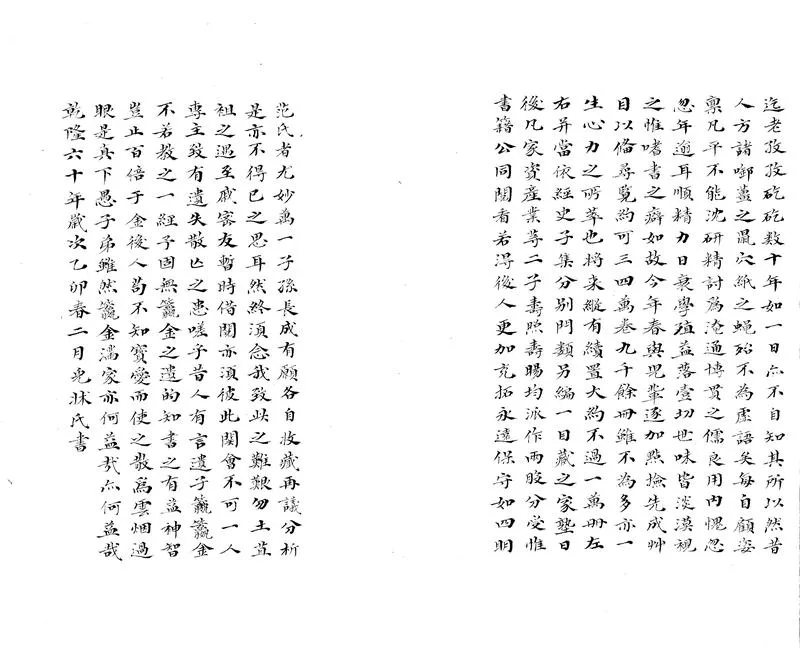 迄老孜孜矻矻数十年如一日亦不自知其所以然昔
人方諸啣薑之鼠穴紙之蝇殆不為虚語矣每自顧姿
禀凡平不能沈研精討為淹通博貫之儒良用内愧忽
忽年逾耳順精力日衰學殖益落壹切世味皆淡漠視
之惟嗜書之癖如故今年春與児輩逐加點撿先成艸
目以俻尋覧約可三四萬卷九千餘冊雖不為多亦一
生心力之所萃也將来縦有續置大約不過一萬冊左
右并當依經史子集分别門類另編一目藏之家塾日
後凡家資産業等二子壽熙壽暘均派作兩股分受惟
書籍公同閲看若得後人更加充拓永遠保守如四明
范氏者尤妙萬一子孫長成有願各自收藏再議分析
是亦不得已之思耳然終湏念我致此之難艱勿土苴
祖之遇至戚審友暫時借閲亦須彼此関會不可一人
專主致有遺失散亡之患嗟乎昔人有言遺子籝金
不若教之一經予固無籯金之遺的知書之有益神智
豈止百倍于金後人苟不知寳愛而使之散為雲烟過
眼是真下愚子弟雖然籯金滿家亦何益哉亦何益哉
乾隆六十年歳次乙卯春二月兎牀氏書